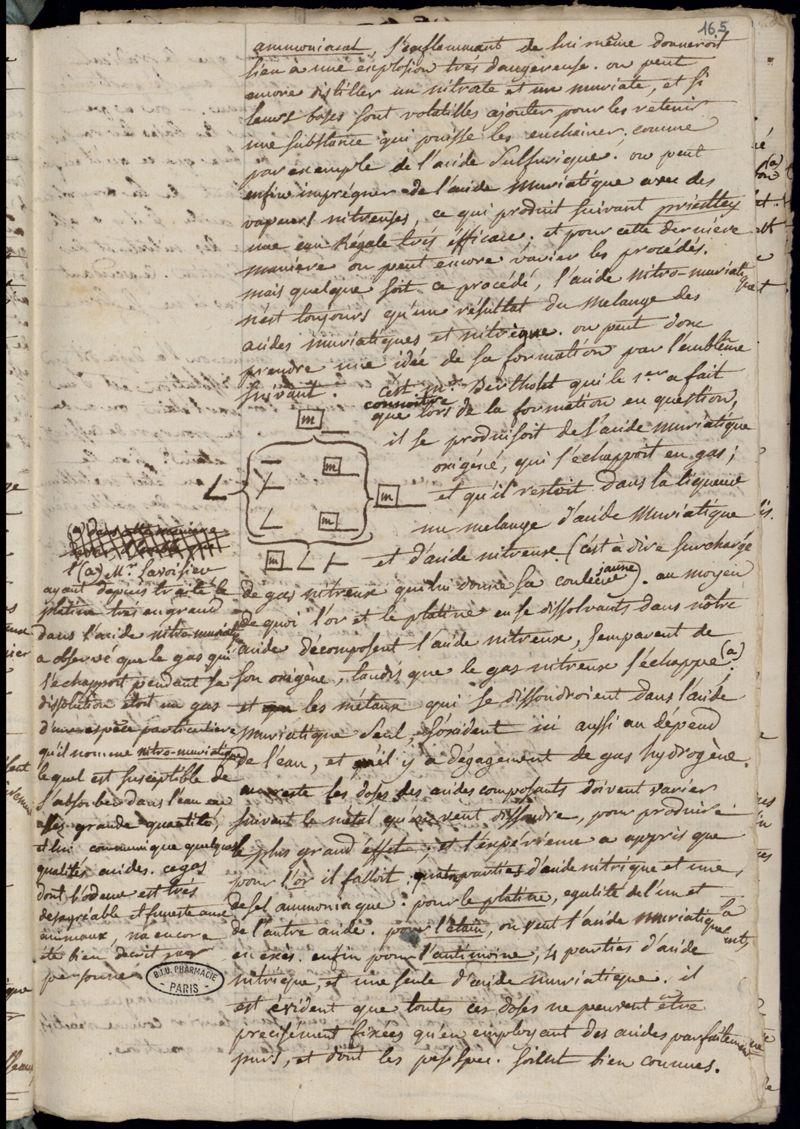 165
ammoniacal, s'enflammant de lui même donneroit
lieu à une explosion très dangereuse. on peut
encore distiller un nitrate et un muriate, et si
leurs bases sont volatilles ajouter pour les retenir
une substance qui puisse les enchainer, comme
par exemple de l'acide sulfurique. on peut
enfin imprégner de l'acide muriatique avec des
vapeurs nitreuses, ce qui produit suivant priestley
une eau Régale très efficace. et pour cette dernière
manière on peut encore varier les procédés.
mais quelque soit ce procédé, l'acide nitro-muriatique
n'est toujours qu'un résultat du melange des
acides muriatiques et nitrique. on peut donc
prendre une idée de sa formation par l'emblême
suivant. C'est mr. Bertholet qui le 1er a fait
connoitre
que lors de la formation en question,
il se produisoit de l'acide muriatique
oxigéné, qui s'échappoit en gas;
et qu'il restoit dans la liqueur
un melange d'acide muriatique
et d'acide nitreux (c'est à dire surchargé
de gas nitreux qui lui donne sa couleur jaune). au moyen
de quoi l'or et le platine en se dissolvants dans nôtre
acide décomposent l'acide nitreux, s'emparent de
son oxigène, tandis que le gas nitreux s'échappe (a);
et les métaux qui se dissoudroient dans l'acide
muriatique seul, s'oxident ici aussi au dépend
de l'eau, et qu'il y a dégagement de gas hydrogène.
au reste les doses des acides composants doivent varier
suivant le métal qu'on veut dissoudre, pour produire
le plus grand effet; et l'expérience a appris que
pour l'or il falloit quatre parties d'acide nitrique et une
de sel ammoniaque. pour le platine, egalité de l'un et
de l'autre acide. pour l'étain, on veut l'acide muriatique
en excès. enfin pour l'antimoine, 4 parties d'acide
nitrique, et une seule d'acide muriatique. il
est évident que toutes ces doses ne peuvent être
précisément fixées qu'en employant des acides parfaitement
purs, et dont les pes. spec. soient bien connues.
m
m
m
m
m
(a) Mr. Lavoisier
ayant depuis traité le
platine très en grand
dans l'acide nitro-muriatique
a observé que le gas qui
s'échappoit pendant sa
dissolution étoit un gas
d'une espèce particulière
qu'il nomme nitro-muriatique
lequel est susceptible de
s'absorber dans l'eau en
très grande quantité,
et lui communique quelques
qualités acides. ce gas
dont l'odeur est très
desagréable et funeste aux
animaux, n'a encore
été bien décrit par
personne.
B.I.U. PHARMACIE
PARIS